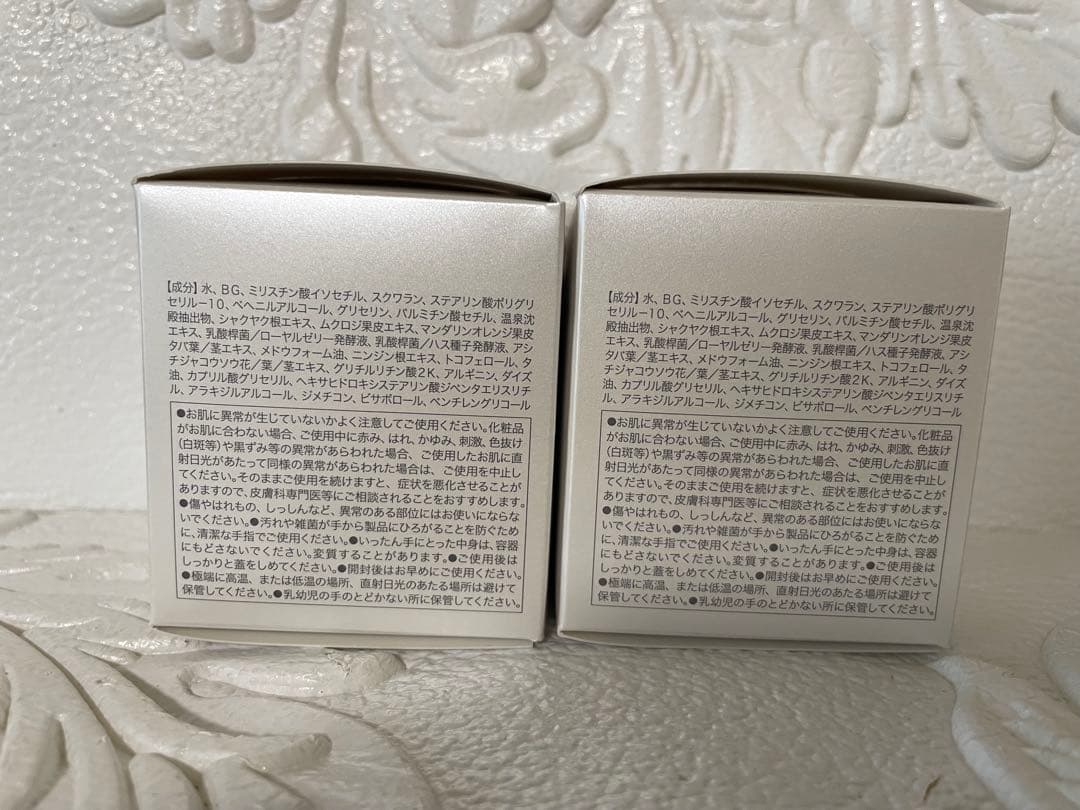 【成分】水、BG、ミリスチン酸イソセチル、スクワラン、ステアリン酸ポリグリ
セリル−10、ベヘニルアルコール、グリセリン、パルミチン酸セチル、温泉沈
殿抽出物、シャクヤク根エキス、ムクロジ果皮エキス、マンダリンオレンジ果皮
エキス、乳酸桿菌／ローヤルゼリー発酵液、乳酸桿菌／ハス種子発酵液、アシ
タバ葉／茎エキス、メドウフォーム油、ニンジン根エキス、トコフェロール、タ
チジャコウソウ花／葉／茎エキス、グリチルリチン酸2K、アルギニン、ダイズ
油、カプリル酸グリセリル、ヘキサヒドロキシステアリン酸ジペンタエリスリチ
ル、アラキジルアルコール、ジメチコン、ビサボロール、ペンチレングリコール
●お肌に異常が生じていないかよく注意してご使用ください。化粧品
がお肌に合わない場合、ご使用中に赤み、はれ、かゆみ、刺激、色抜け
(白斑等)や黒ずみ等の異常があらわれた場合、ご使用したお肌に直
射日光があたって同様の異常があらわれた場合は、ご使用を中止し
てください。そのままご使用を続けますと、症状を悪化させることが
ありますので、皮膚科専門医等にご相談されることをおすすめします。
●傷やはれもの、しっしんなど、異常のある部位にはお使いにならな
いでください。●汚れや雑菌が手から製品にひろがることを防ぐため
に、清潔な手指でご使用ください。●いったん手にとった中身は、容器
にもどさないでください。変質することがあります。●ご使用後は
しっかりと蓋をしめてください。●開封後はお早めにご使用ください。
●極端に高温、または低温の場所、直射日光のあたる場所は避けて
保管してください。●乳幼児の手のとどかない所に保管してください。
【成分】水、BG、ミリスチン酸イソセチル、スクワラン、ステアリン酸ポリグリ
セリル−10、ベヘニルアルコール、グリセリン、パルミチン酸セチル、温泉沈
殿抽出物、シャクヤク根エキス、ムクロジ果皮エキス、マンダリンオレンジ果皮
エキス、乳酸桿菌／ローヤルゼリー発酵液、乳酸桿菌／ハス種子発酵液、アシ
タバ葉／茎エキス、メドウフォーム油、ニンジン根エキス、トコフェロール、タ
チジャコウソウ花／葉／茎エキス、グリチルリチン酸2K、アルギニン、ダイズ
油、カプリル酸グリセリル、ヘキサヒドロキシステアリン酸ジペンタエリスリチ
ル、アラキジルアルコール、ジメチコン、ビサボロール、ペンチレングリコール
●お肌に異常が生じていないかよく注意してご使用ください。化粧品
がお肌に合わない場合、ご使用中に赤み、はれ、かゆみ、刺激、色抜け
(白斑等)や黒ずみ等の異常があらわれた場合、ご使用したお肌に直
射日光があたって同様の異常があらわれた場合は、ご使用を中止し
てください。そのままご使用を続けますと、症状を悪化させることが
ありますので、皮膚科専門医等にご相談されることをおすすめします。
●傷やはれもの、しっしんなど、異常のある部位にはお使いにならな
いでください。●汚れや雑菌が手から製品にひろがることを防ぐため
に、清潔な手指でご使用ください。●いったん手にとった中身は、容器
にもどさないでください。変質することがあります。●ご使用後は
しっかりと蓋をしめてください。●開封後はお早めにご使用ください。
●極端に高温、または低温の場所、直射日光のあたる場所は避けて
保管してください。●乳幼児の手のとどかない所に保管してください。